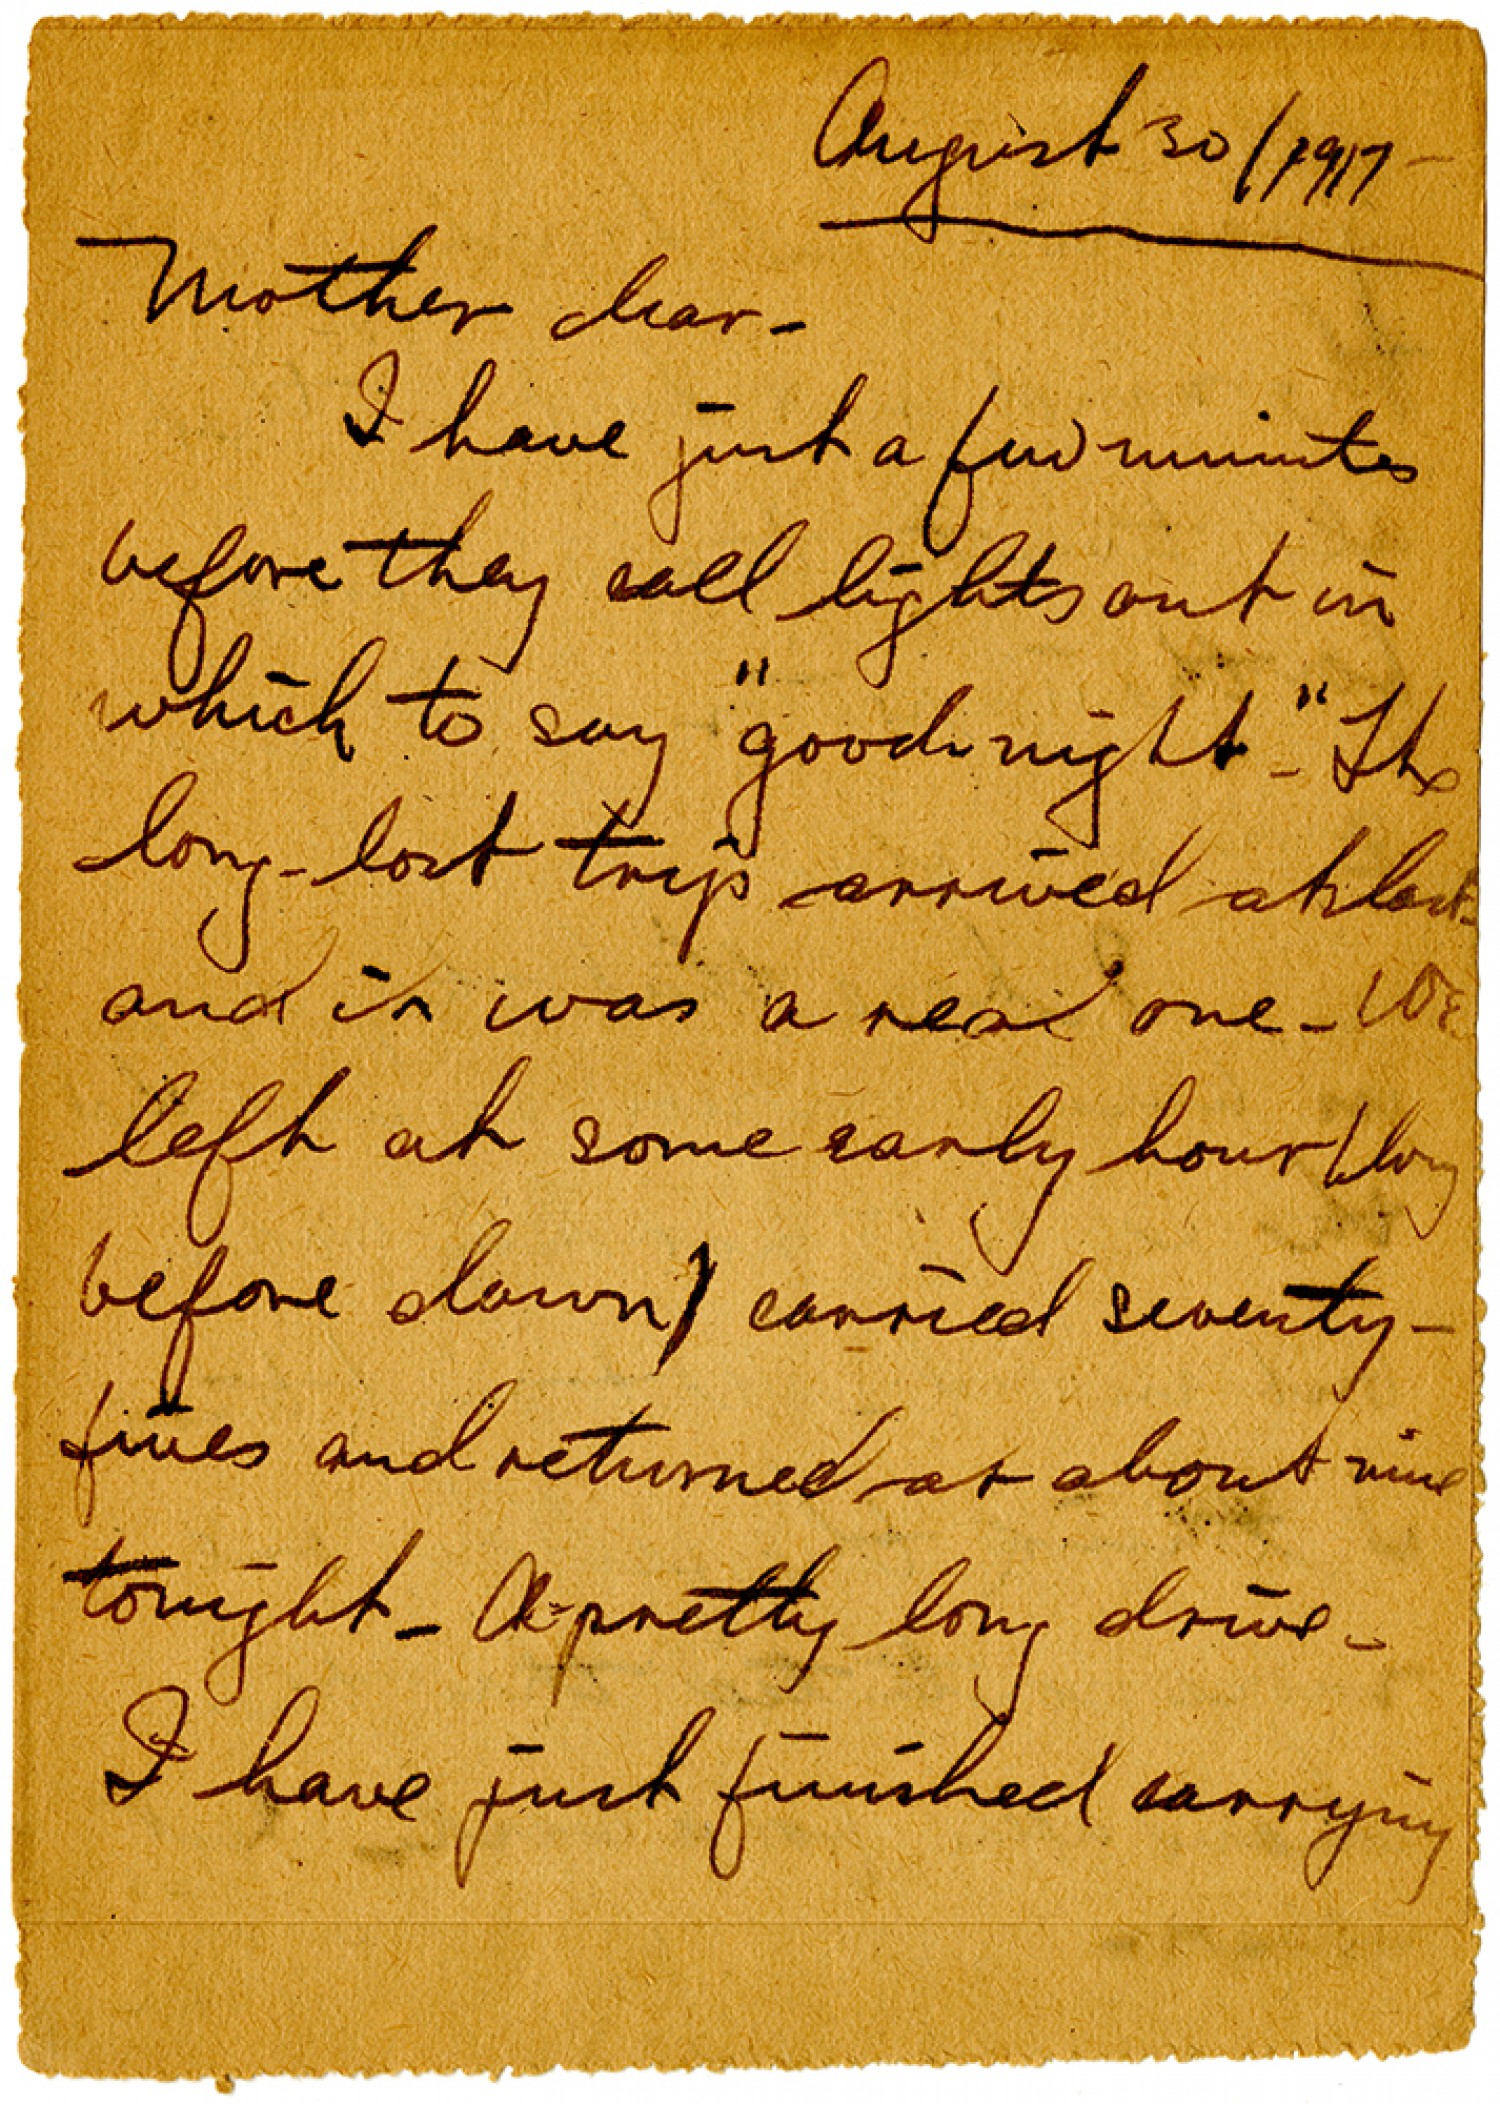 August 30/1917-
Mother dear-
I have just a few minutes
before they call lights out in
which to say "good-night-" The
long-lost trip arrived at last-
and it was a real one- We
left at some early hour (long
before dawn) carried seventy-
fives and returned at about nine
tonight- A pretty long drive-
I have just finished carrying